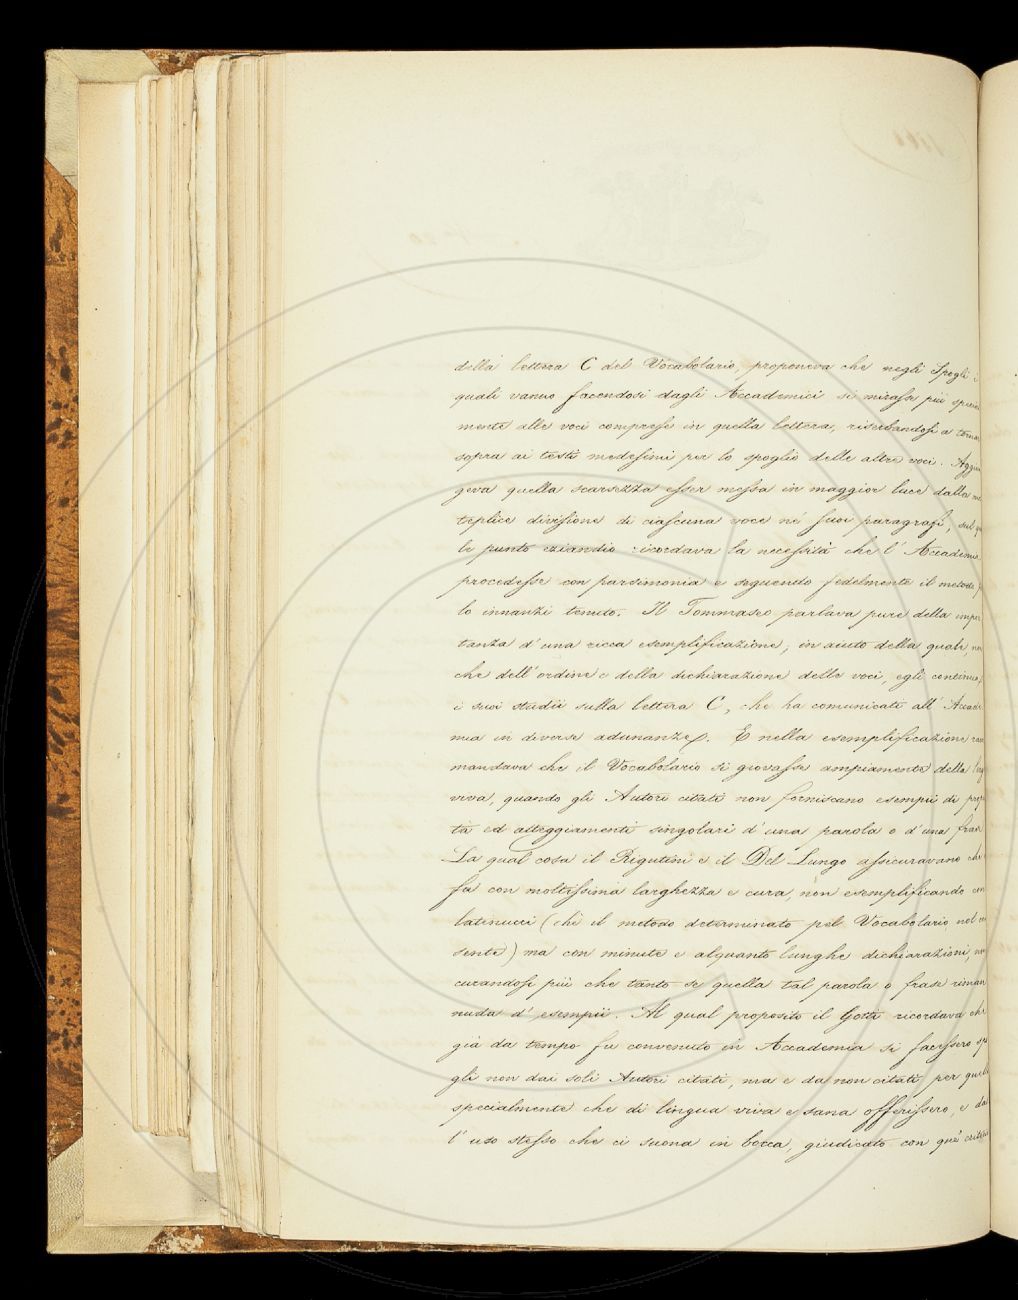 della lettera C del Vocabolario, proponeva che negli Spogli i
quali vanno facendosi dagli Accademici si mirasse più special
mente alle voci comprese in quella lettera, riserbandosi a tornar
sopra ai testi medesimi per lo spoglio delle altre voci. Aggiun
geva quella scarsezza esser messa in maggior luce dalla mol
teplice divisione di ciascuna voce ne' suoi paragrafi, sul qua
le punto eziandio ricordava la necessità che l'Accademia
procedesse con parsimonia e seguendo fedelmente il metodo
lo innanzi tenuto. Il Tommaseo parlava pure della impor
tanza d'una ricca esemplificazione, in aiuto della quale, non
che dell'ordine e della dichiarazione delle voci, egli continua
i suoi studii sulla lettera C, che ha comunicati all'Accade
mia in diverse adunanze. E nella esemplificazione racco
mandava che il Vocabolario si giovasse ampiamente della lingua
viva, quando gli Autori citati non forniscano esempii di proprie
tà ed atteggiamenti singolari d'una parola o d'una frase
La qual cosa il Rigutini e il Del Lungo assicuravano che
fa con moltissima larghezza e cura, non esemplificando con
latinucci (chè il metodo determinato pel Vocabolario nol con
sente) ma con minute e alquanto lunghe dichiarazioni, non
curandosi più che tanto se quella tal parola o frase riman
nuda d'esempii. Al qual proposito il Gotti ricordava che
già da tempo fu convenuto in Accademia si facessero spo
gli non dai soli Autori citati, ma e da non citati, per quello
specialmente che di lingua viva e sana offerissero, e dal
l'uso stesso che ci suona in bocca, giudicato con que' criterii